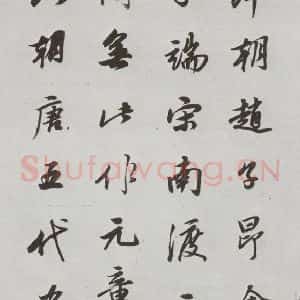 朝趙子昂
端宋南渡
無此作元
朝唐五代
Shufawang.CN